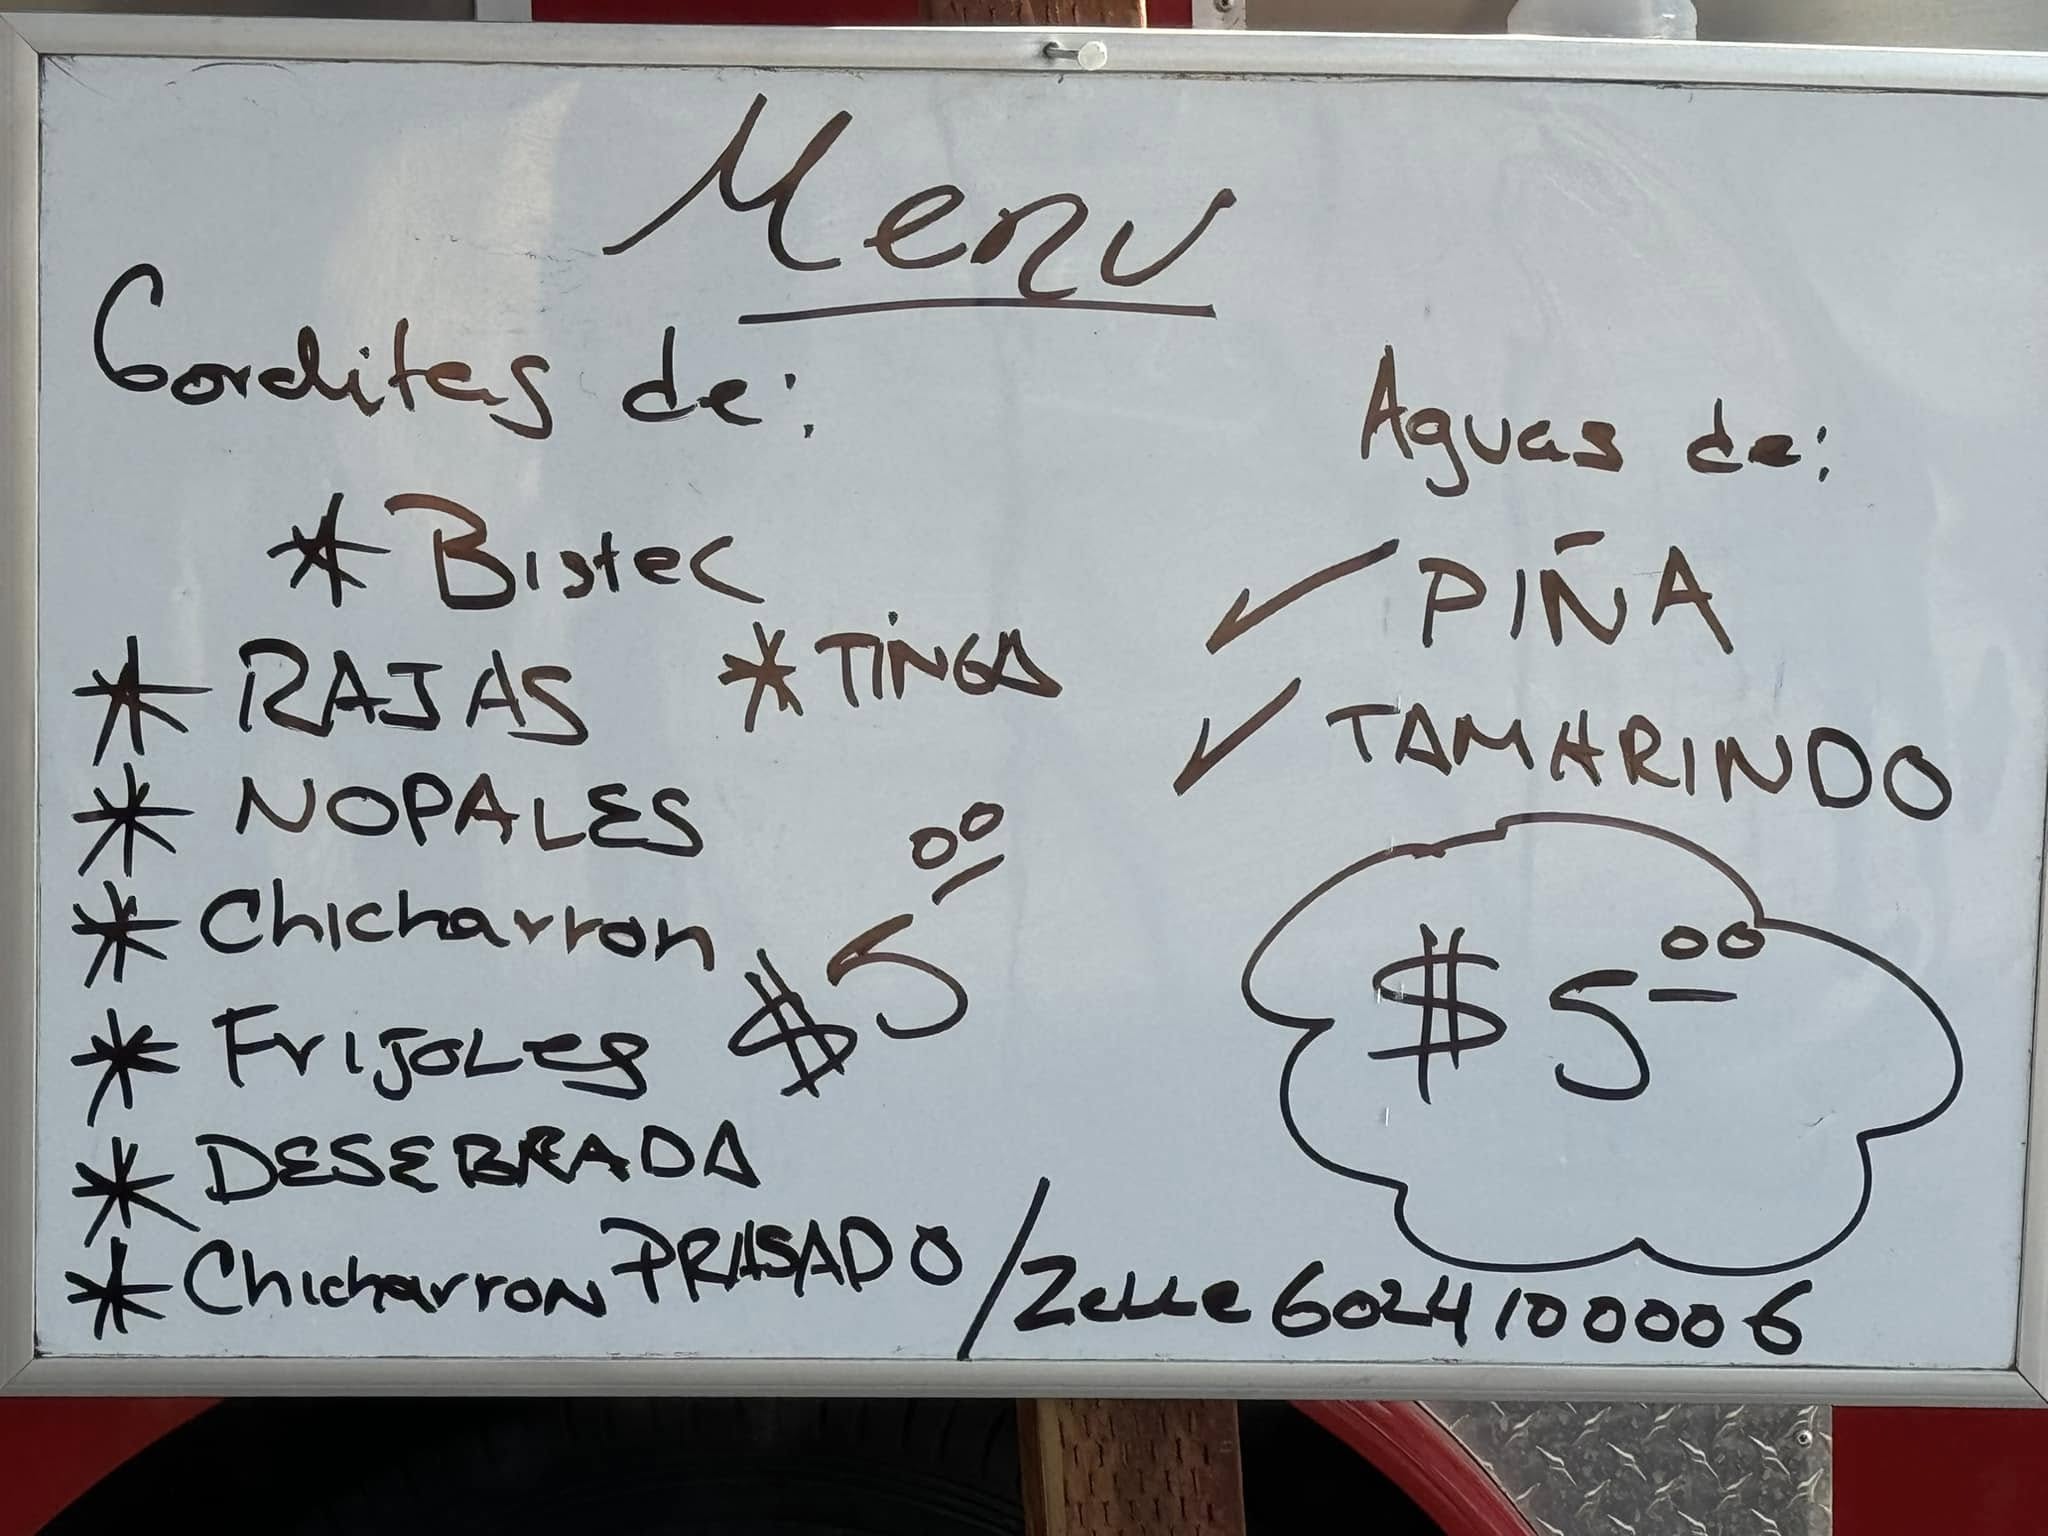 Menu
Gorditas de:
* Bistec
* RAJAS * TINGA
* NOPALES
* Chicharron
* FRIJOLES
$5.00
* DESEBRADA
* Chicharron PRASADO / Zelle 6024100006
Aguas de:
✓ PIÑA
✓ TAMARINDO
$5.00